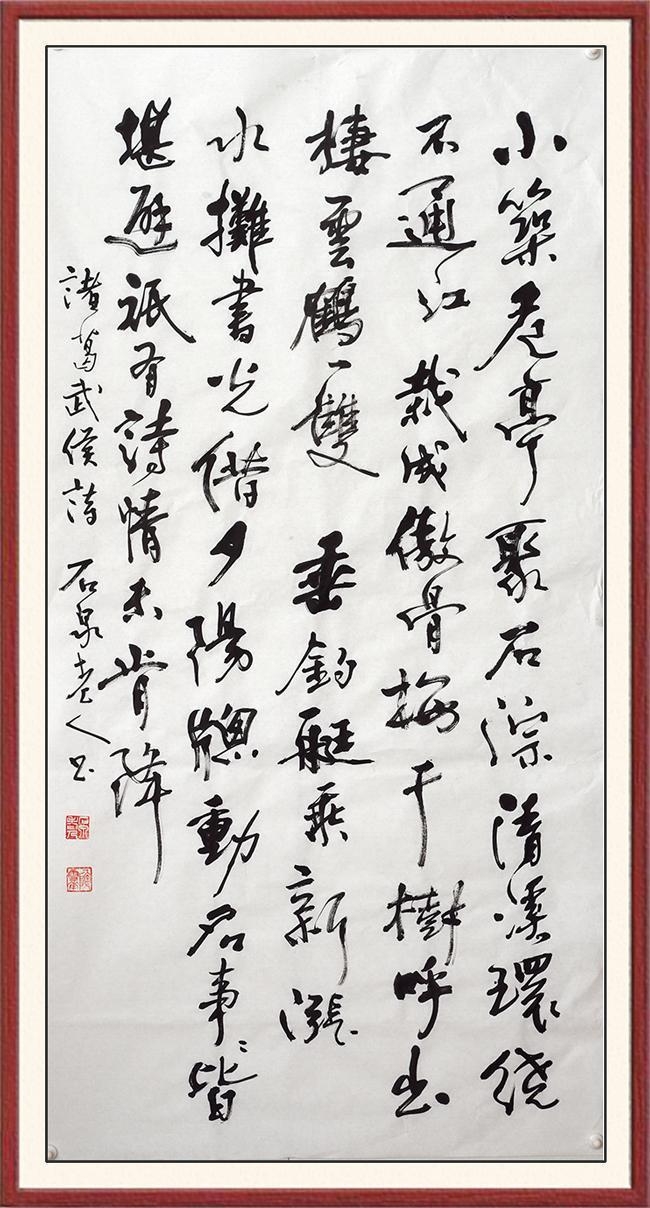 小築危亭聚石淙清溪環繞
不通江栽成傲骨梅千樹呼出
棲雲鶴一雙垂釣艇乘新漲
水攤書光借夕陽牕動名事〻皆
堪避祇有詩情未肯降
諸葛武侯詩 石泉老人书